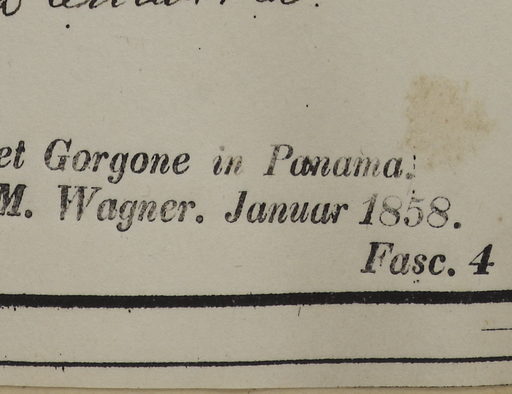 et Gorgone in Panama.
M. Wagner. Januar 1858.
Fasc. 4